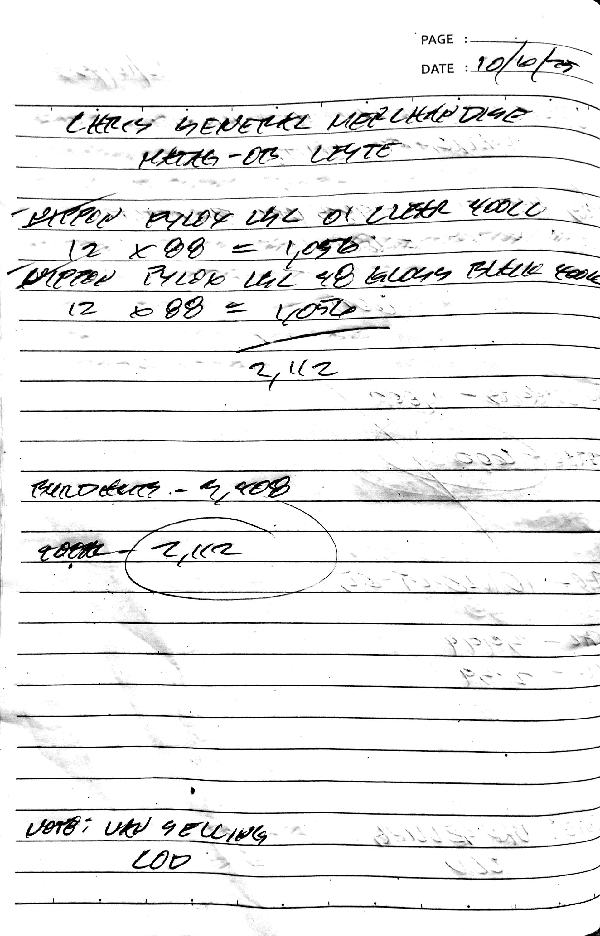 PAGE :
DATE : 10/6/25
GENERAL MERCHANDISE
MATAG-OB LEYTE
NIPPON PYLOX LAZ 01 CLEAR 400CC
12 x 88 = 1,056
NIPPON PYLOX LAZ 48 GLOSS BLACK 400CC
12 x 88 = 1,056
2,112
2,112
NOTE: VAN SELLING
COD